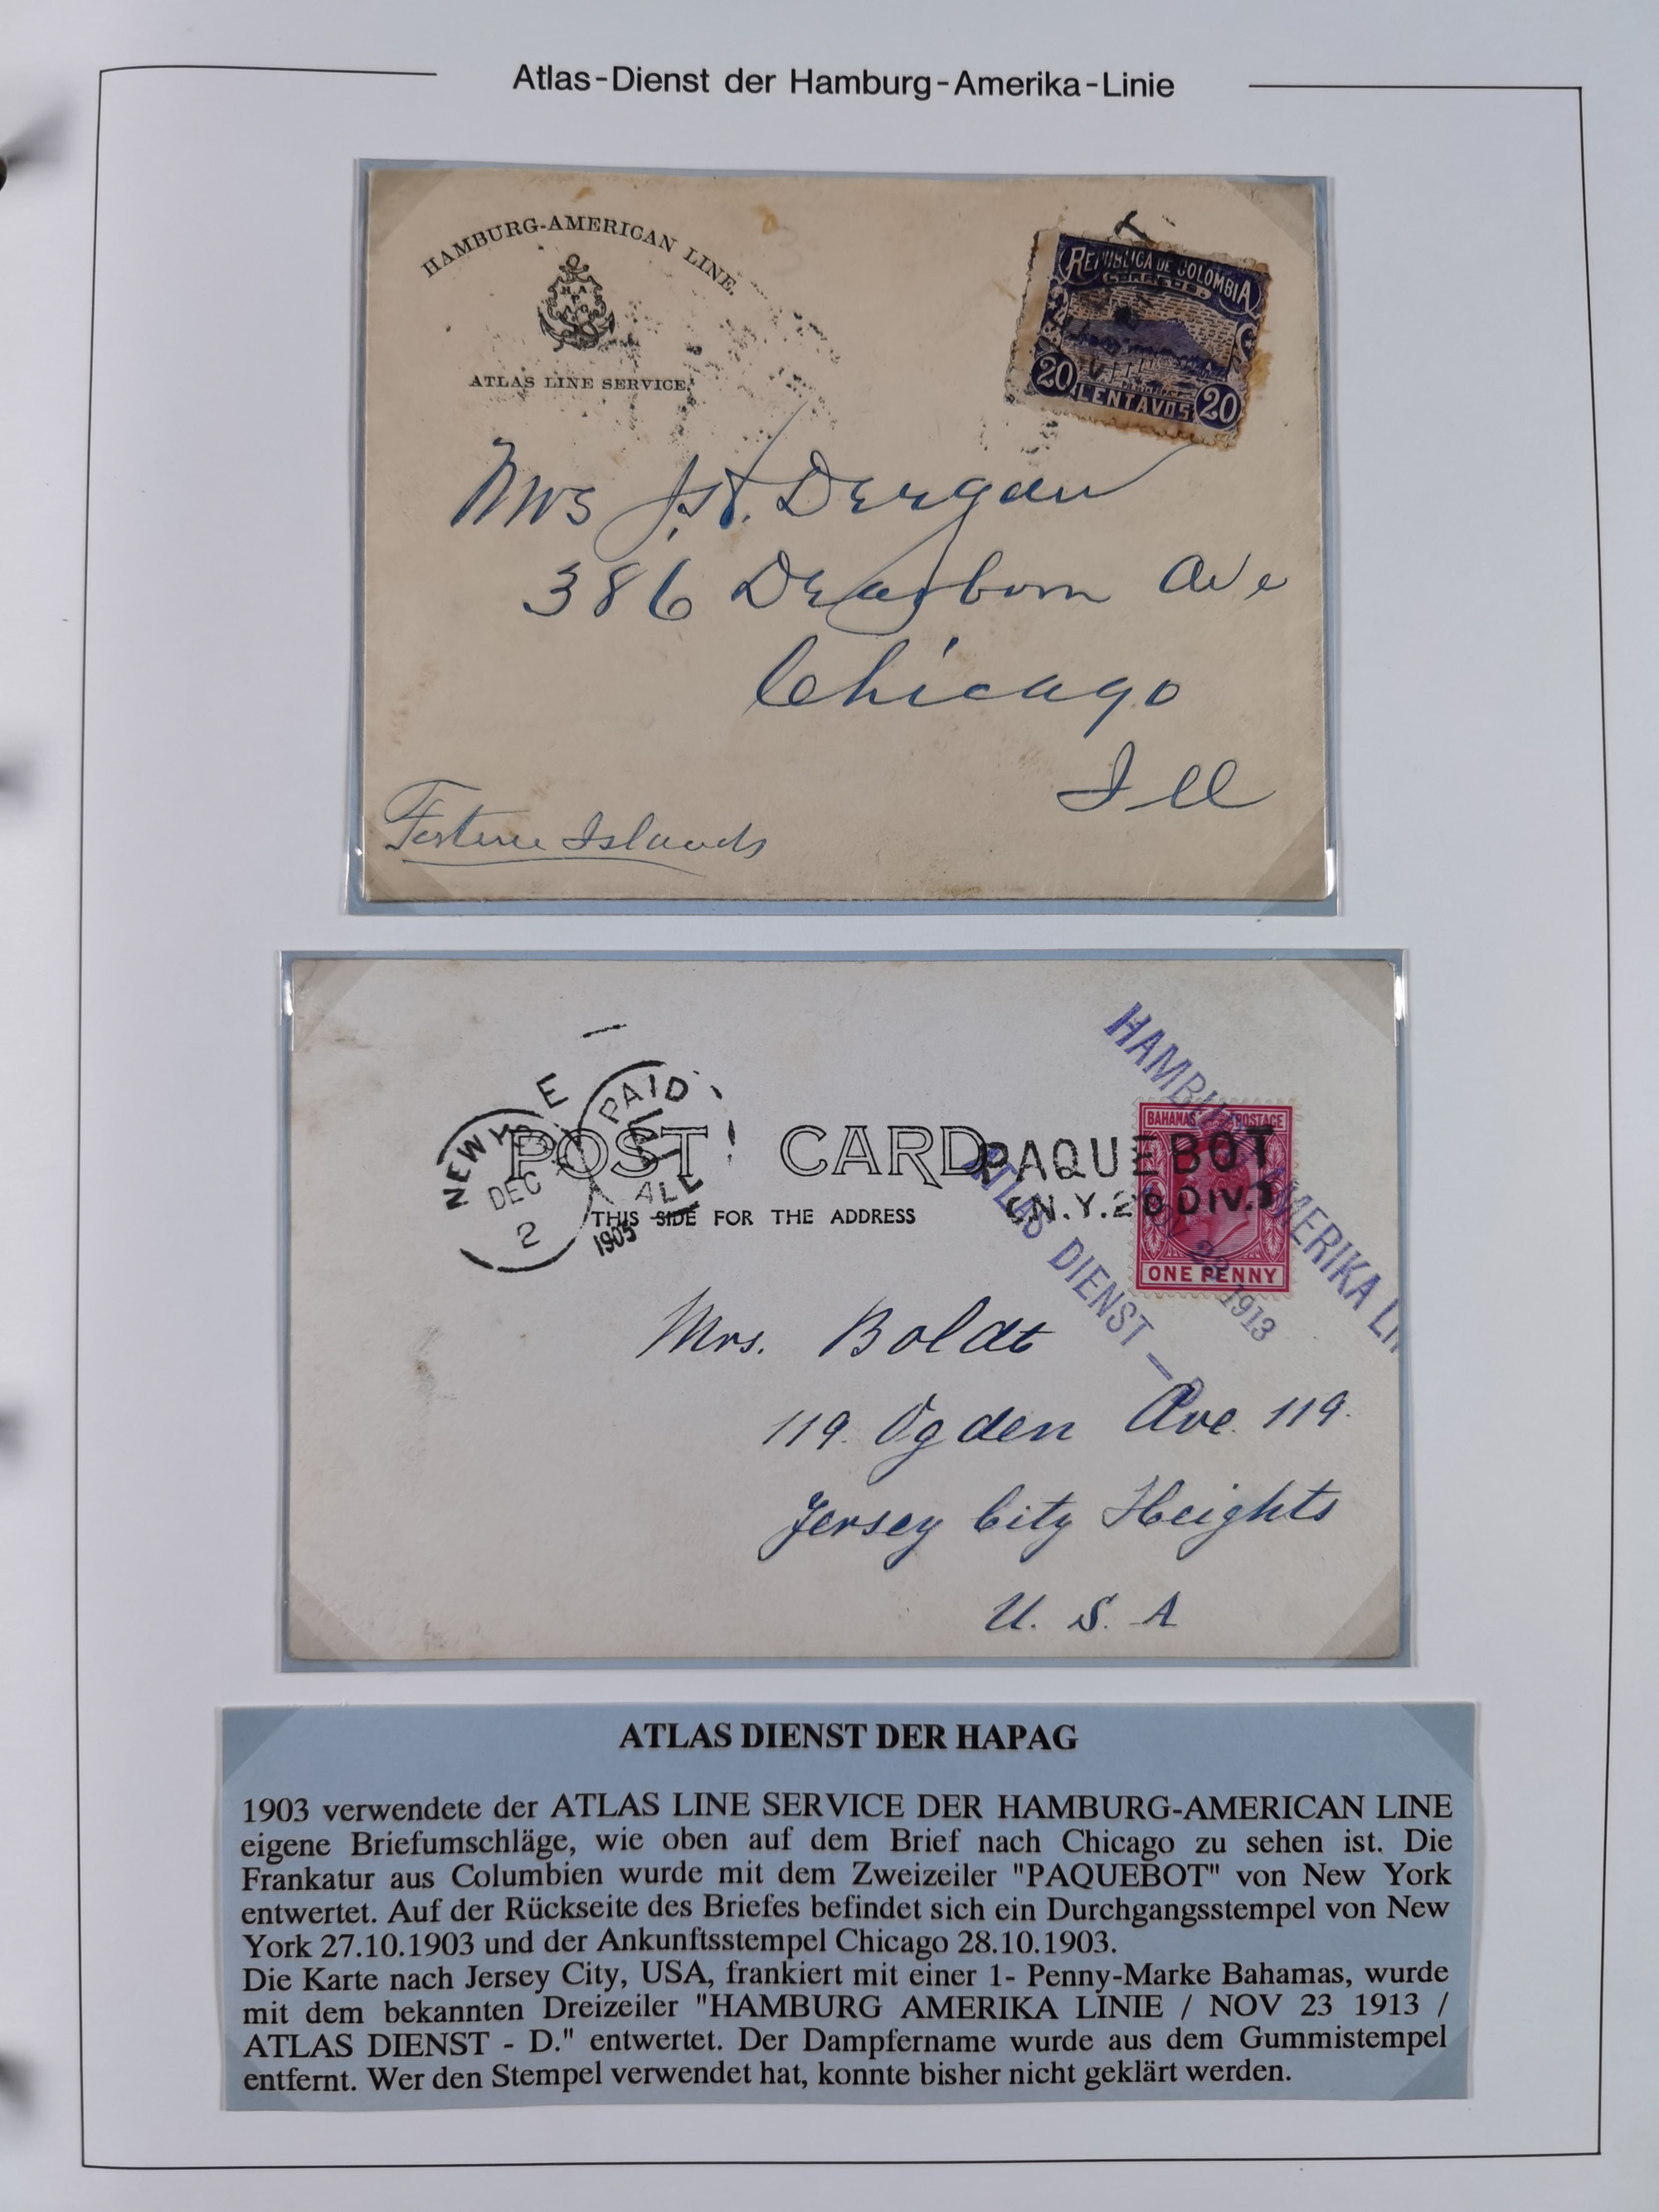 Atlas-Dienst der Hamburg-Amerika-Linie
HAMBURG-AMERICAN LINE.
H A
P A G
ATLAS LINE SERVICE.
T
REPUBLICA DE COLOMBIA
CORREOS
20 CENTAVOS 20
Mrs J. H. Dergan
386 Dearborn Ave
Chicago
Ill
Fortune Islands
HAMBURG AMERIKA LI
NOV 23 1913
ATLAS DIENST - D
E
PAID
ALL
NEW YO
DEC
2
1905
BAHAMAS POSTAGE
ONE PENNY
POST CARD
PAQUEBOT
N.Y. 2D DIV.
THIS SIDE FOR THE ADDRESS
Mrs. Boldt
119. Ogden Ave. 119.
Jersey City Heights
U. S. A
ATLAS DIENST DER HAPAG
1903 verwendete der ATLAS LINE SERVICE DER HAMBURG-AMERICAN LINE
eigene Briefumschläge, wie oben auf dem Brief nach Chicago zu sehen ist. Die
Frankatur aus Columbien wurde mit dem Zweizeiler "PAQUEBOT" von New York
entwertet. Auf der Rückseite des Briefes befindet sich ein Durchgangsstempel von New
York 27.10.1903 und der Ankunftsstempel Chicago 28.10.1903.
Die Karte nach Jersey City, USA, frankiert mit einer 1- Penny-Marke Bahamas, wurde
mit dem bekannten Dreizeiler "HAMBURG AMERIKA LINIE / NOV 23 1913 /
ATLAS DIENST - D." entwertet. Der Dampfername wurde aus dem Gummistempel
entfernt. Wer den Stempel verwendet hat, konnte bisher nicht geklärt werden.